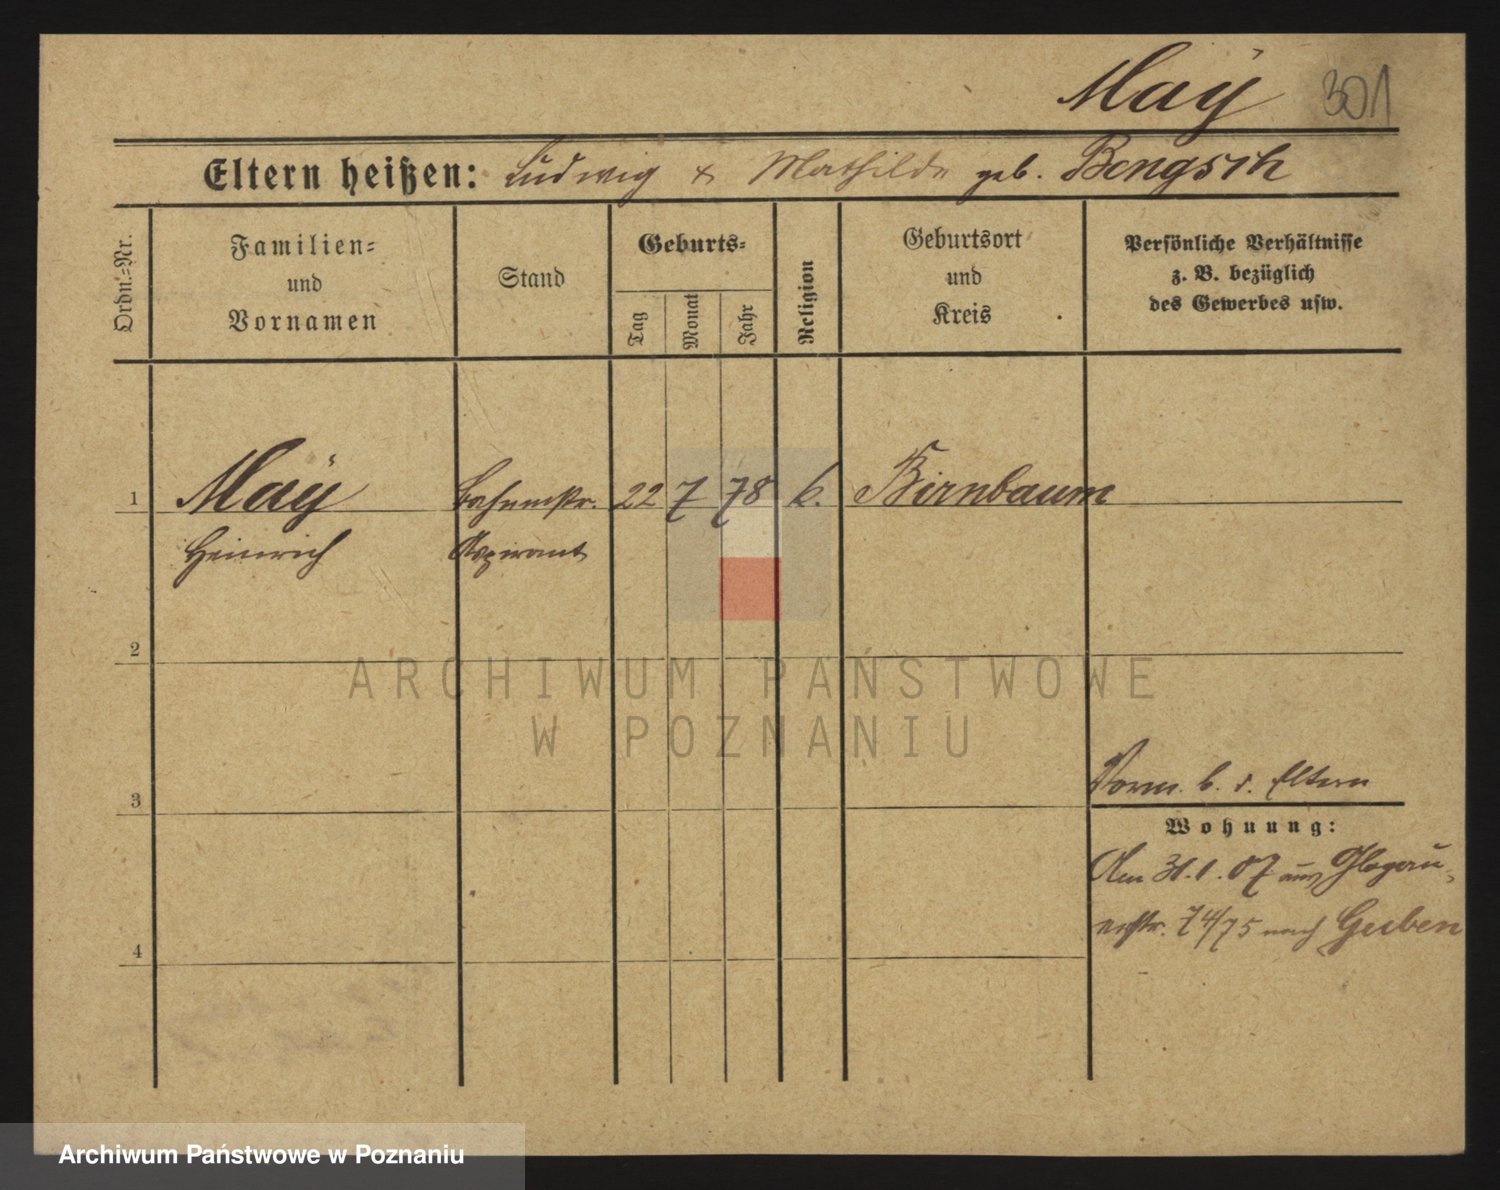 Maÿ 301
Eltern heißen: Ludwig & Mathilde geb. Bengsch
Ordn.-Nr.
Familien-
und
Vornamen
Stand
Geburts-
Tag
Monat
Jahr
Religion
Geburtsort
und
Kreis
Persönliche Verhältnisse
z. B. bezüglich
des Gewerbes usw.
1 Maÿ 22 7 78 k. Birnbaum
Heinrich Aspirant
2
ARCHIWUM PAŃSTWOWE
W POZNANIU
3
b. d. Eltern
Wohnung:
Am 31.1.07 aus Glogau-
erstr. 74/75 nach Guben
4
Archiwum Państwowe w Poznaniu